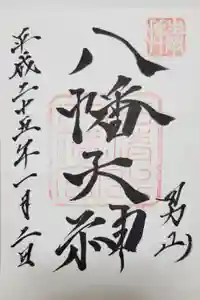 男山
八幡天神
平成二十五年一月二日